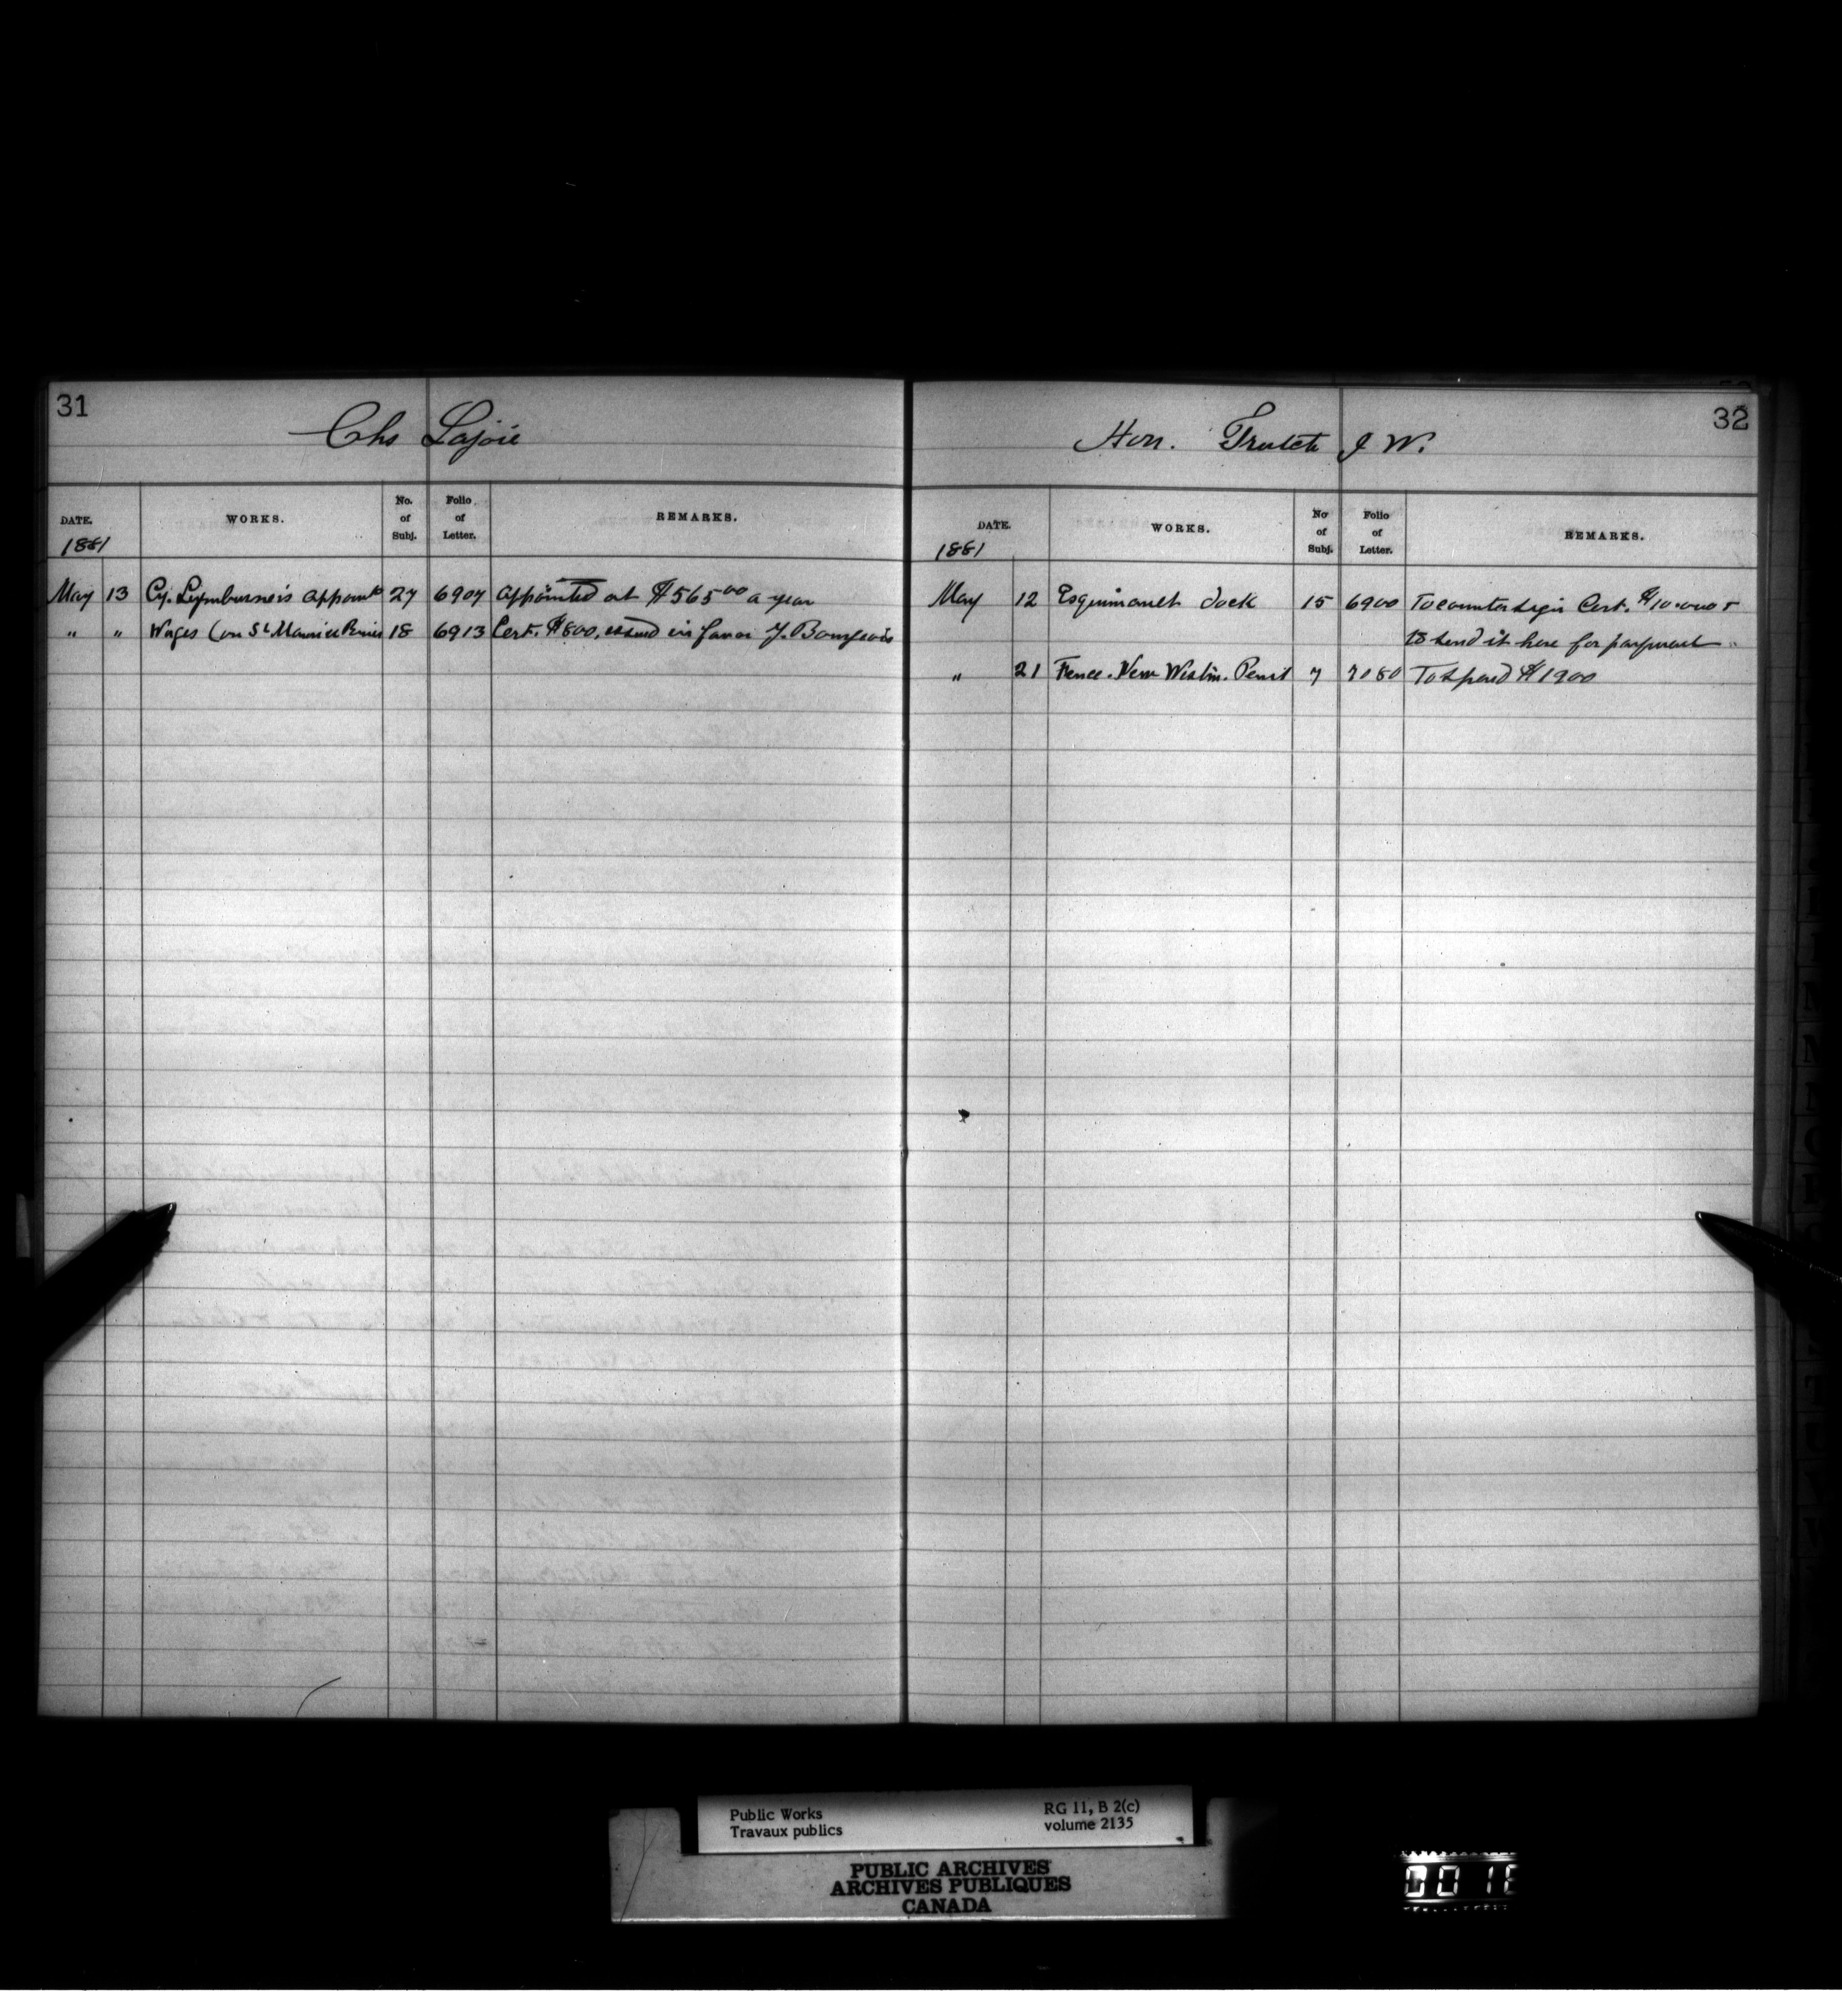 31
Chs Lajoie
DATE. WORKS. No. of Subj. Folio of Letter. REMARKS.
1881
May 13 Cy. Lymburner's appoint 27 6907 appointed at $565 00 a year
" " Wages (on St Maurice 18 6913 Cert. $800, issued in favor J. Bourgeois
32
Hon. Trutch J W.
DATE. WORKS. No of Subj. Folio of Letter. REMARKS.
1881
May 12 Esquimault dock 15 6900 To countersign Cert. $10.000 &
to send it here for payment
" 21 Fence. New Westm. Penit 7 7080 To spend $1900
Public Works RG 11, B 2(c)
Travaux publics volume 2135
PUBLIC ARCHIVES
ARCHIVES PUBLIQUES
CANADA